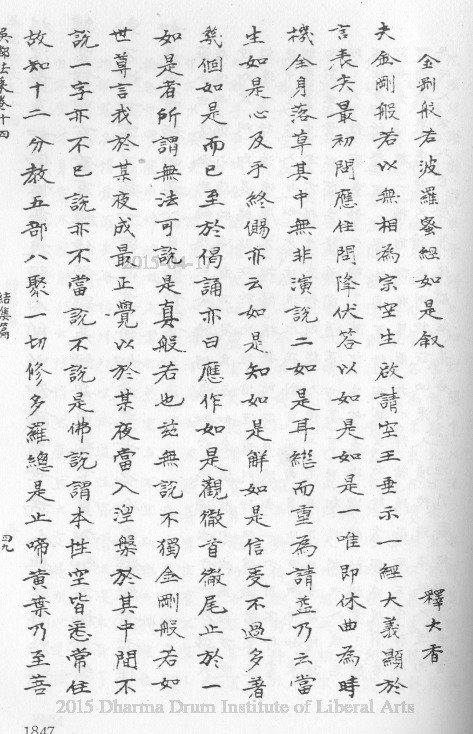 金剛般若波羅蜜經如是叙
釋大香
夫金剛般若以無相為宗空生啟請空王垂示一經大義顯於
言表矣最初問應住問降伏答以如是如是一唯即休曲為時
機全身落草其中無非演說二如是耳繼而重為請益乃云當
生如是心及乎終儩亦云如是知如是解如是信受不過多著
幾個如是而已至於偈誦亦曰應作如是觀徹首徹尾止於一
如是者所謂無法可說是真般若也茲無說不獨金剛般若如
世尊言我於某夜成最正覺以於某夜當入涅槃於其中間不
說一字亦不已說亦不當說不說是佛說謂本性空皆悉常住
故知十二分教五部八聚一切修多羅總是止啼黃葉乃至菩
吳都法乘卷十四
結集篇
四九
1847
2015-04-17
2015 Dharma Drum Institute of Liberal Arts